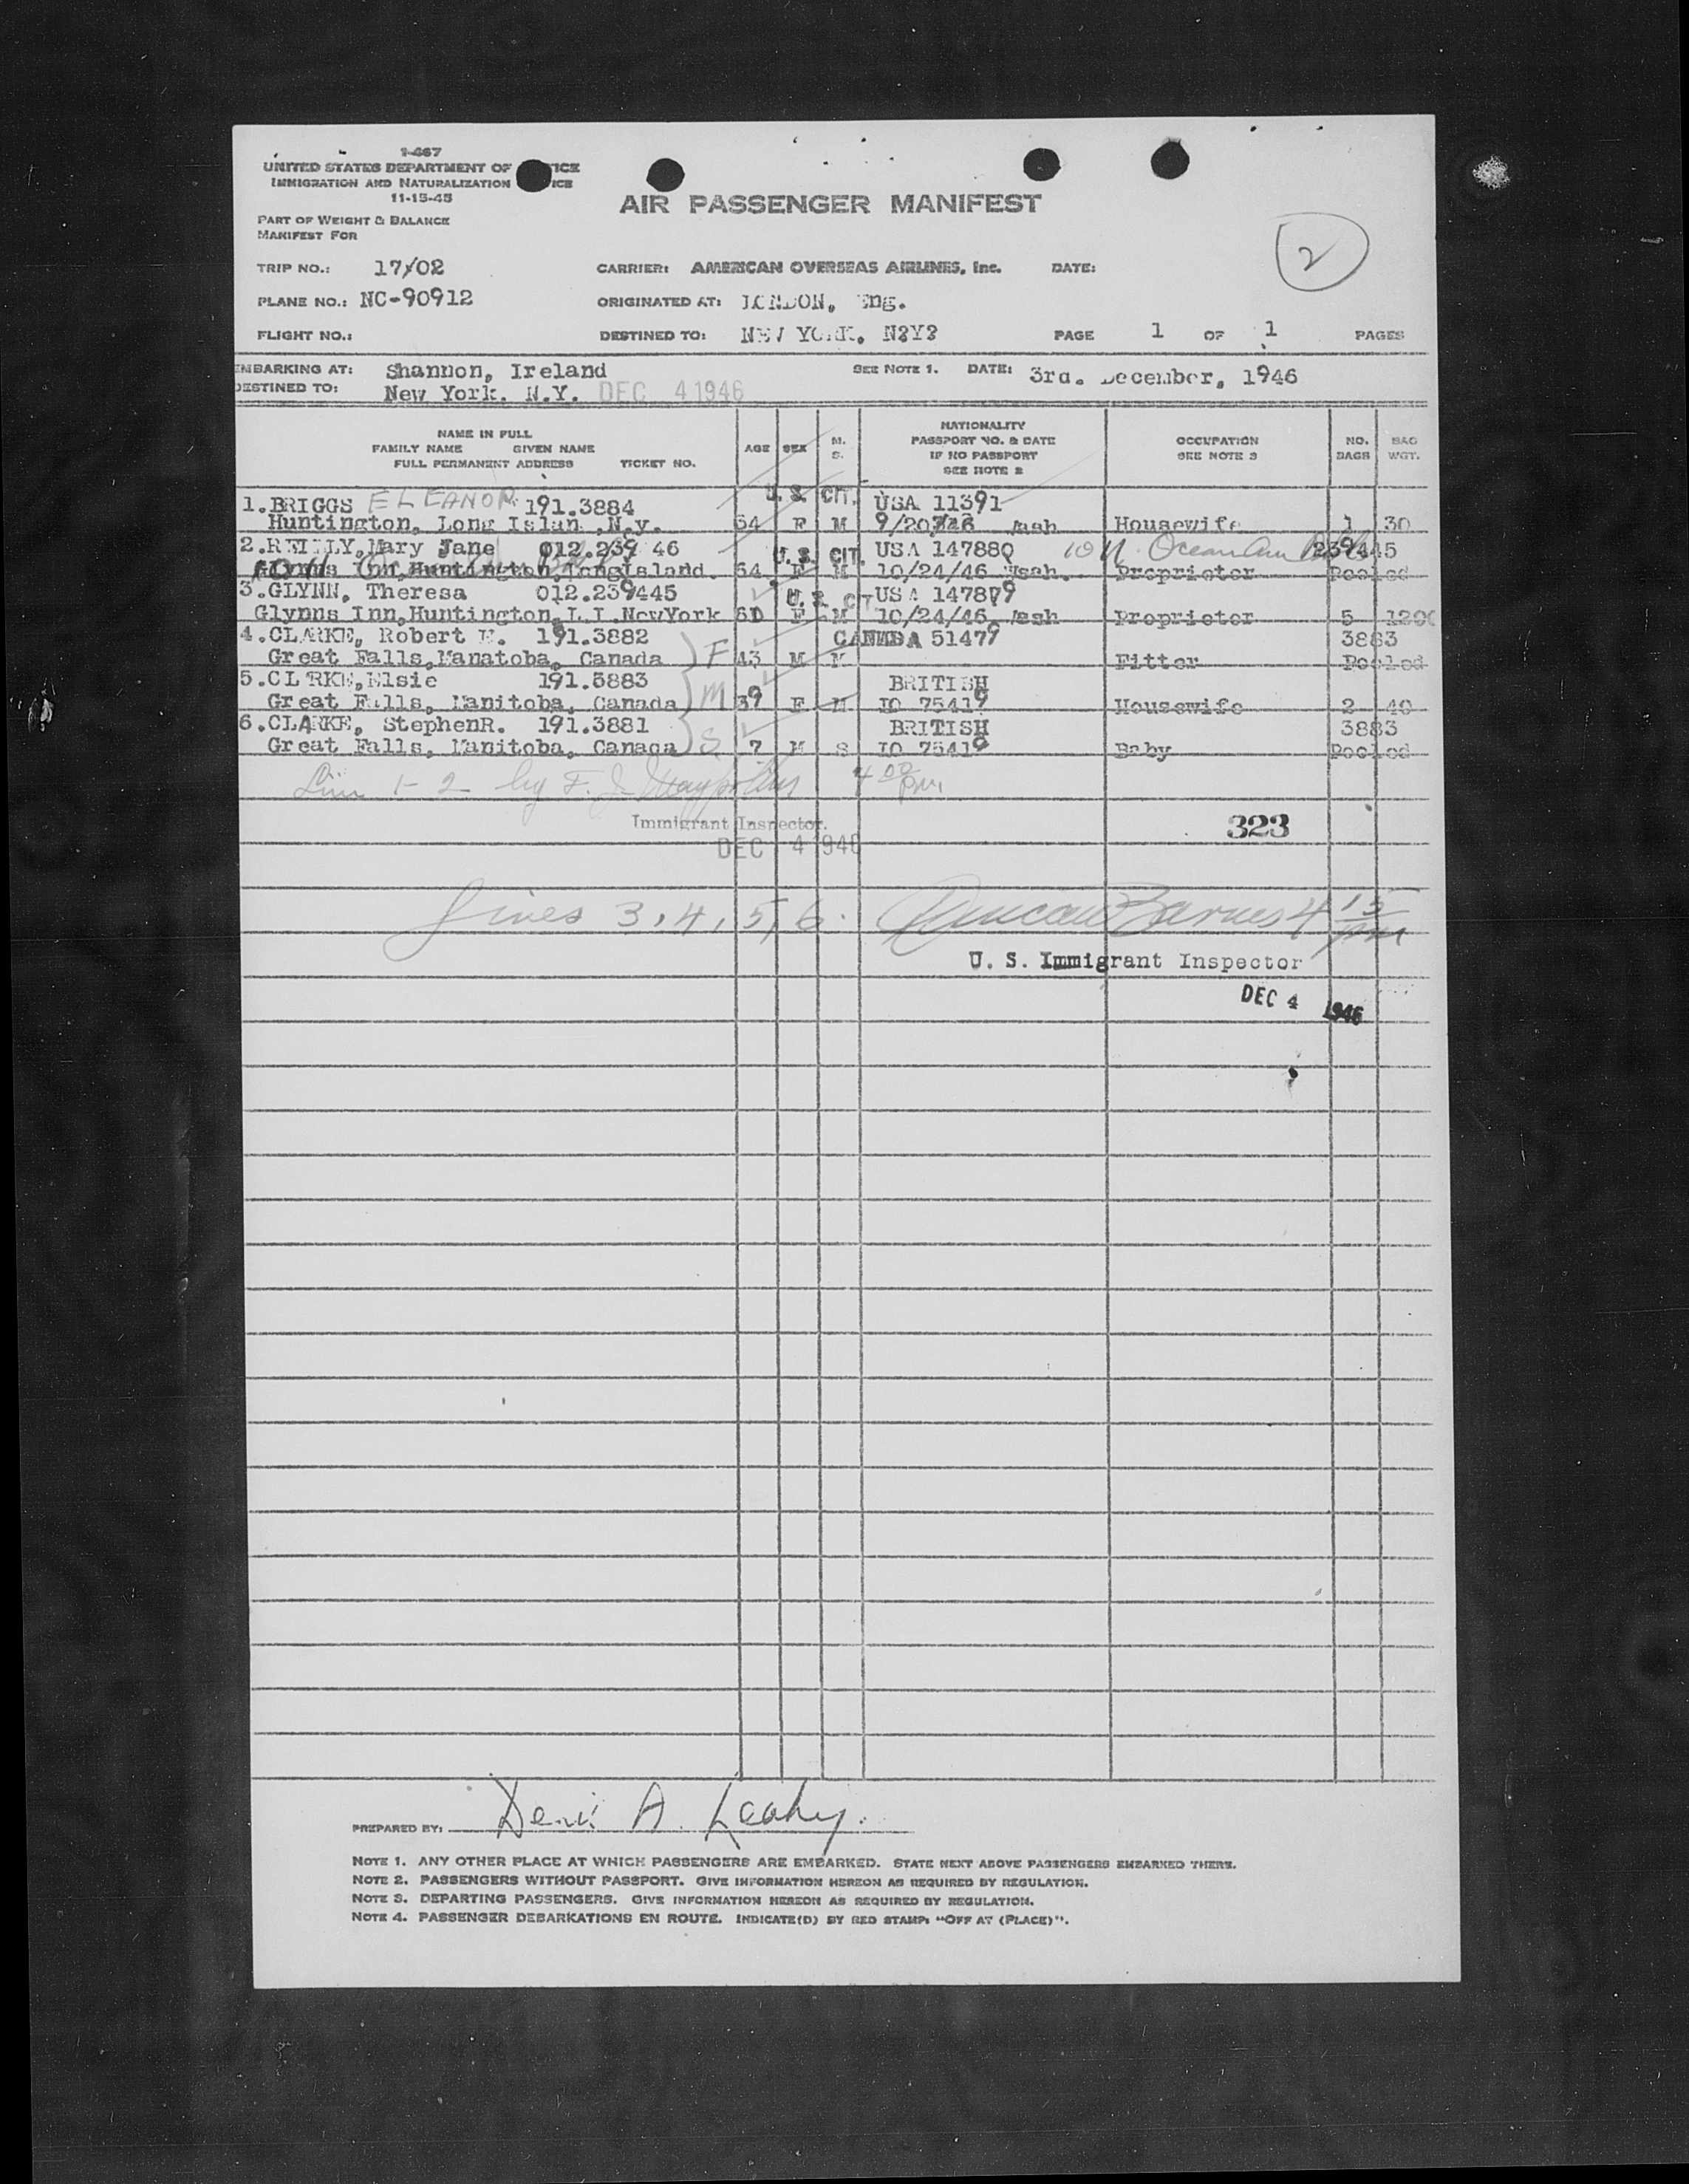 1-467
UNITED STATES DEPARTMENT OF ICE
IMMIGRATION AND NATURALIZATION ICE
11-15-45
AIR PASSENGER MANIFEST
PART OF WEIGHT & BALANCE
MANIFEST FOR
2
TRIP NO.: 17/02 CARRIER: AMERICAN OVERSEAS AIRLINES, Inc. DATE:
PLANE NO.: NC-90912 ORIGINATED AT: LONDON, Eng.
FLIGHT NO.: DESTINED TO: NEW YORK, N?Y? PAGE 1 OF 1 PAGES
EMBARKING AT: Shannon, Ireland SEE NOTE 1. DATE: 3rd. December, 1946
DESTINED TO: New York. N.Y. DEC 4 1946
NAME IN FULL
FAMILY NAME GIVEN NAME
FULL PERMANENT ADDRESS TICKET NO. AGE SEX M. S. NATIONALITY PASSPORT NO. & DATE IF NO PASSPORT SEE NOTE 2 OCCUPATION SEE NOTE 3 NO. BAGS BAG WGT.
1.BRIGGS ELEANOR 191.3884 U. S. CIT. USA 11391
Huntington, Long Islan ,N.y. 54 F M 9/20/46 Wash Housewife 1 30
2.REILLY,Mary Jane 012.239 46 U. S. CIT. USA 147880 10 N. Ocean Ave 239445
Inn,Huntington,LongIsland. 54 F M 10/24/46 Wash. Proprietor Pooled
3.GLYNN, Theresa 012.239445 U. S. CIT. USA 147879
Glynns Inn,Huntington,L.I.NewYork F M 10/24/46 Wash Proprietor 5 120
4.CLARKE, Robert 191.3882 CANADA 51479 3883
Great Falls,Manatoba, Canada F 43 M M Fitter Pooled
5.CL RKE,Elsie 191.3883 BRITISH
Great Falls, Manitoba, Canada M 39 F M IO 75419 Housewife 2 40
6.CLARKE, StephenR. 191.3881 BRITISH 3883
Great Falls, Manitoba, Canada S 7 M S IO 75419 Baby Pooled
Line 1-2 by F. J. 4 00 pm
Immigrant Inspector. 323
DEC 4 1946
Lines 3,4,5,6. Duncan Barnes 4 15 pm
U. S. Immigrant Inspector
DEC 4 1946
PREPARED BY: Denis A. Leahy.
NOTE 1. ANY OTHER PLACE AT WHICH PASSENGERS ARE EMBARKED. STATE NEXT ABOVE PASSENGERS EMBARKED THERE.
NOTE 2. PASSENGERS WITHOUT PASSPORT. GIVE INFORMATION HEREON AS REQUIRED BY REGULATION.
NOTE 3. DEPARTING PASSENGERS. GIVE INFORMATION HEREON AS REQUIRED BY REGULATION.
NOTE 4. PASSENGER DEBARKATIONS EN ROUTE. INDICATE(D) BY RED STAMP: "OFF AT (PLACE)".